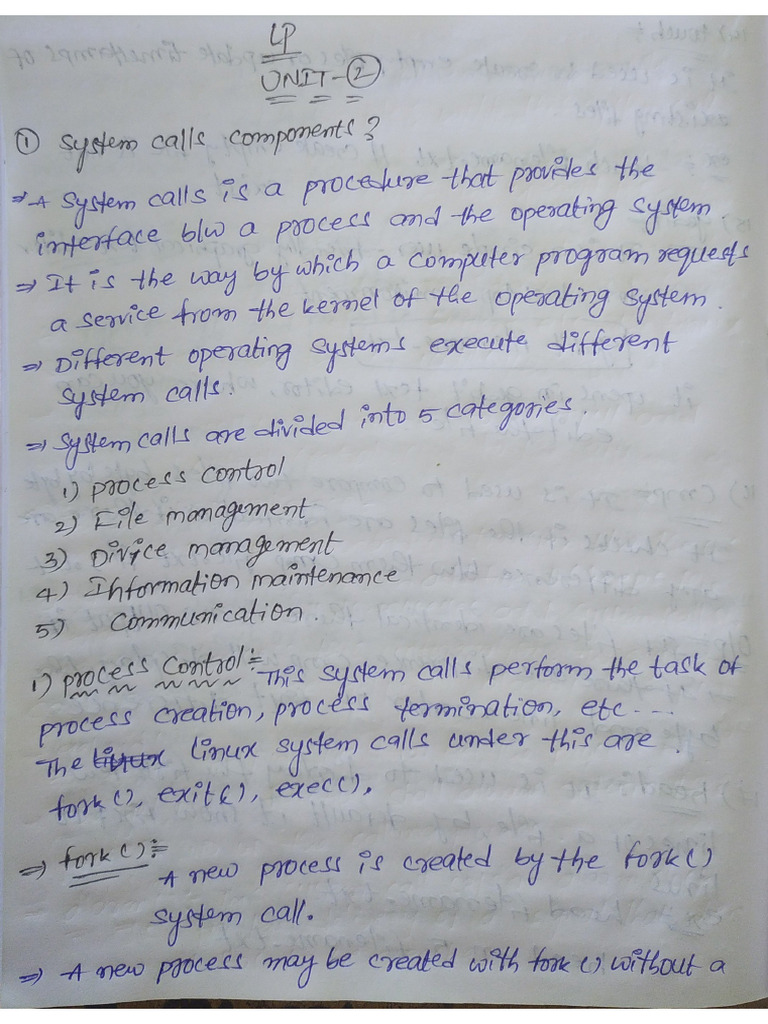 LP
UNIT-②
① System calls components?
⇒ A System calls is a procedure that provides the
interface b/w a process and the operating system
⇒ It is the way by which a computer program requests
a service from the kernel of the operating system.
⇒ Different operating systems execute different
system calls.
⇒ System calls are divided into 5 categories.
1) process control
2) File management
3) Divice management
4) Information maintenance
5) Communication.
1) process Control:= This system calls perform the task of
process creation, process termination, etc....
The linux system calls under this are
fork(), exit(), exec().
⇒ fork():=
A new process is created by the fork()
system call.
⇒ A new process may be created with fork() without a